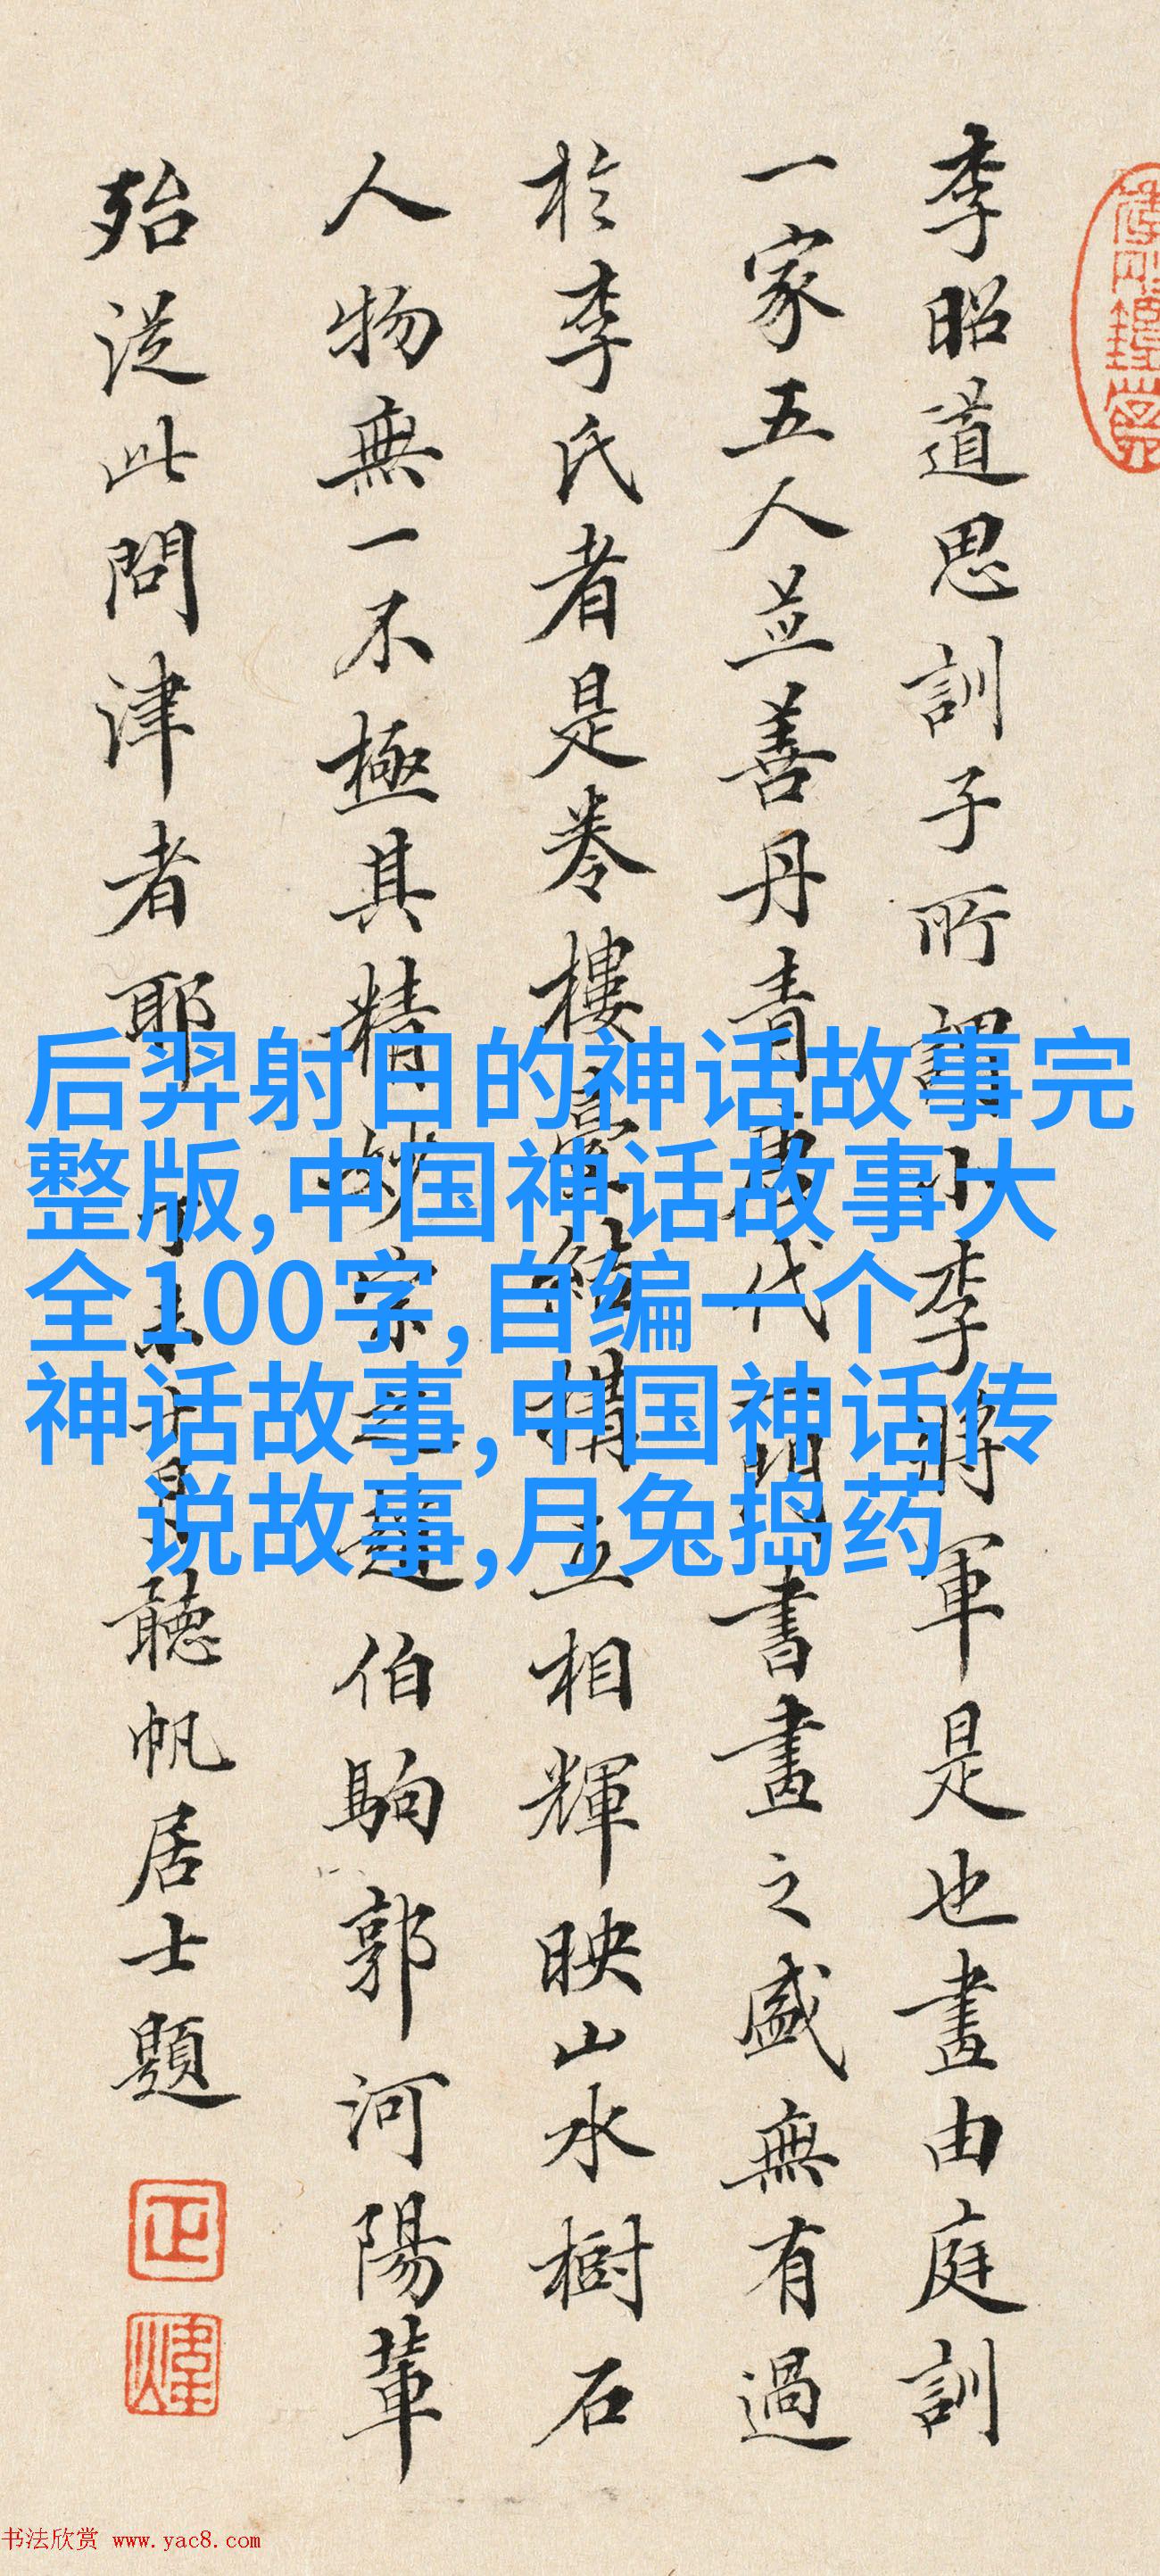 李昭道思訓子所謂小李將軍是也畫由庭訓
一家五人並善丹青唐代書畫之盛無有過
於李氏者是卷樓臺結構互相輝映山水樹石
人物無一不極其精妙宋之趙伯駒郭河陽輩
殆從此問津者耶聽帆居士題
后羿射日的神话故事完
整版,中国神话故事大
全100字,自编一个
神话故事,中国神话传
说故事,月兔捣药
书法欣赏 www.yac8.com